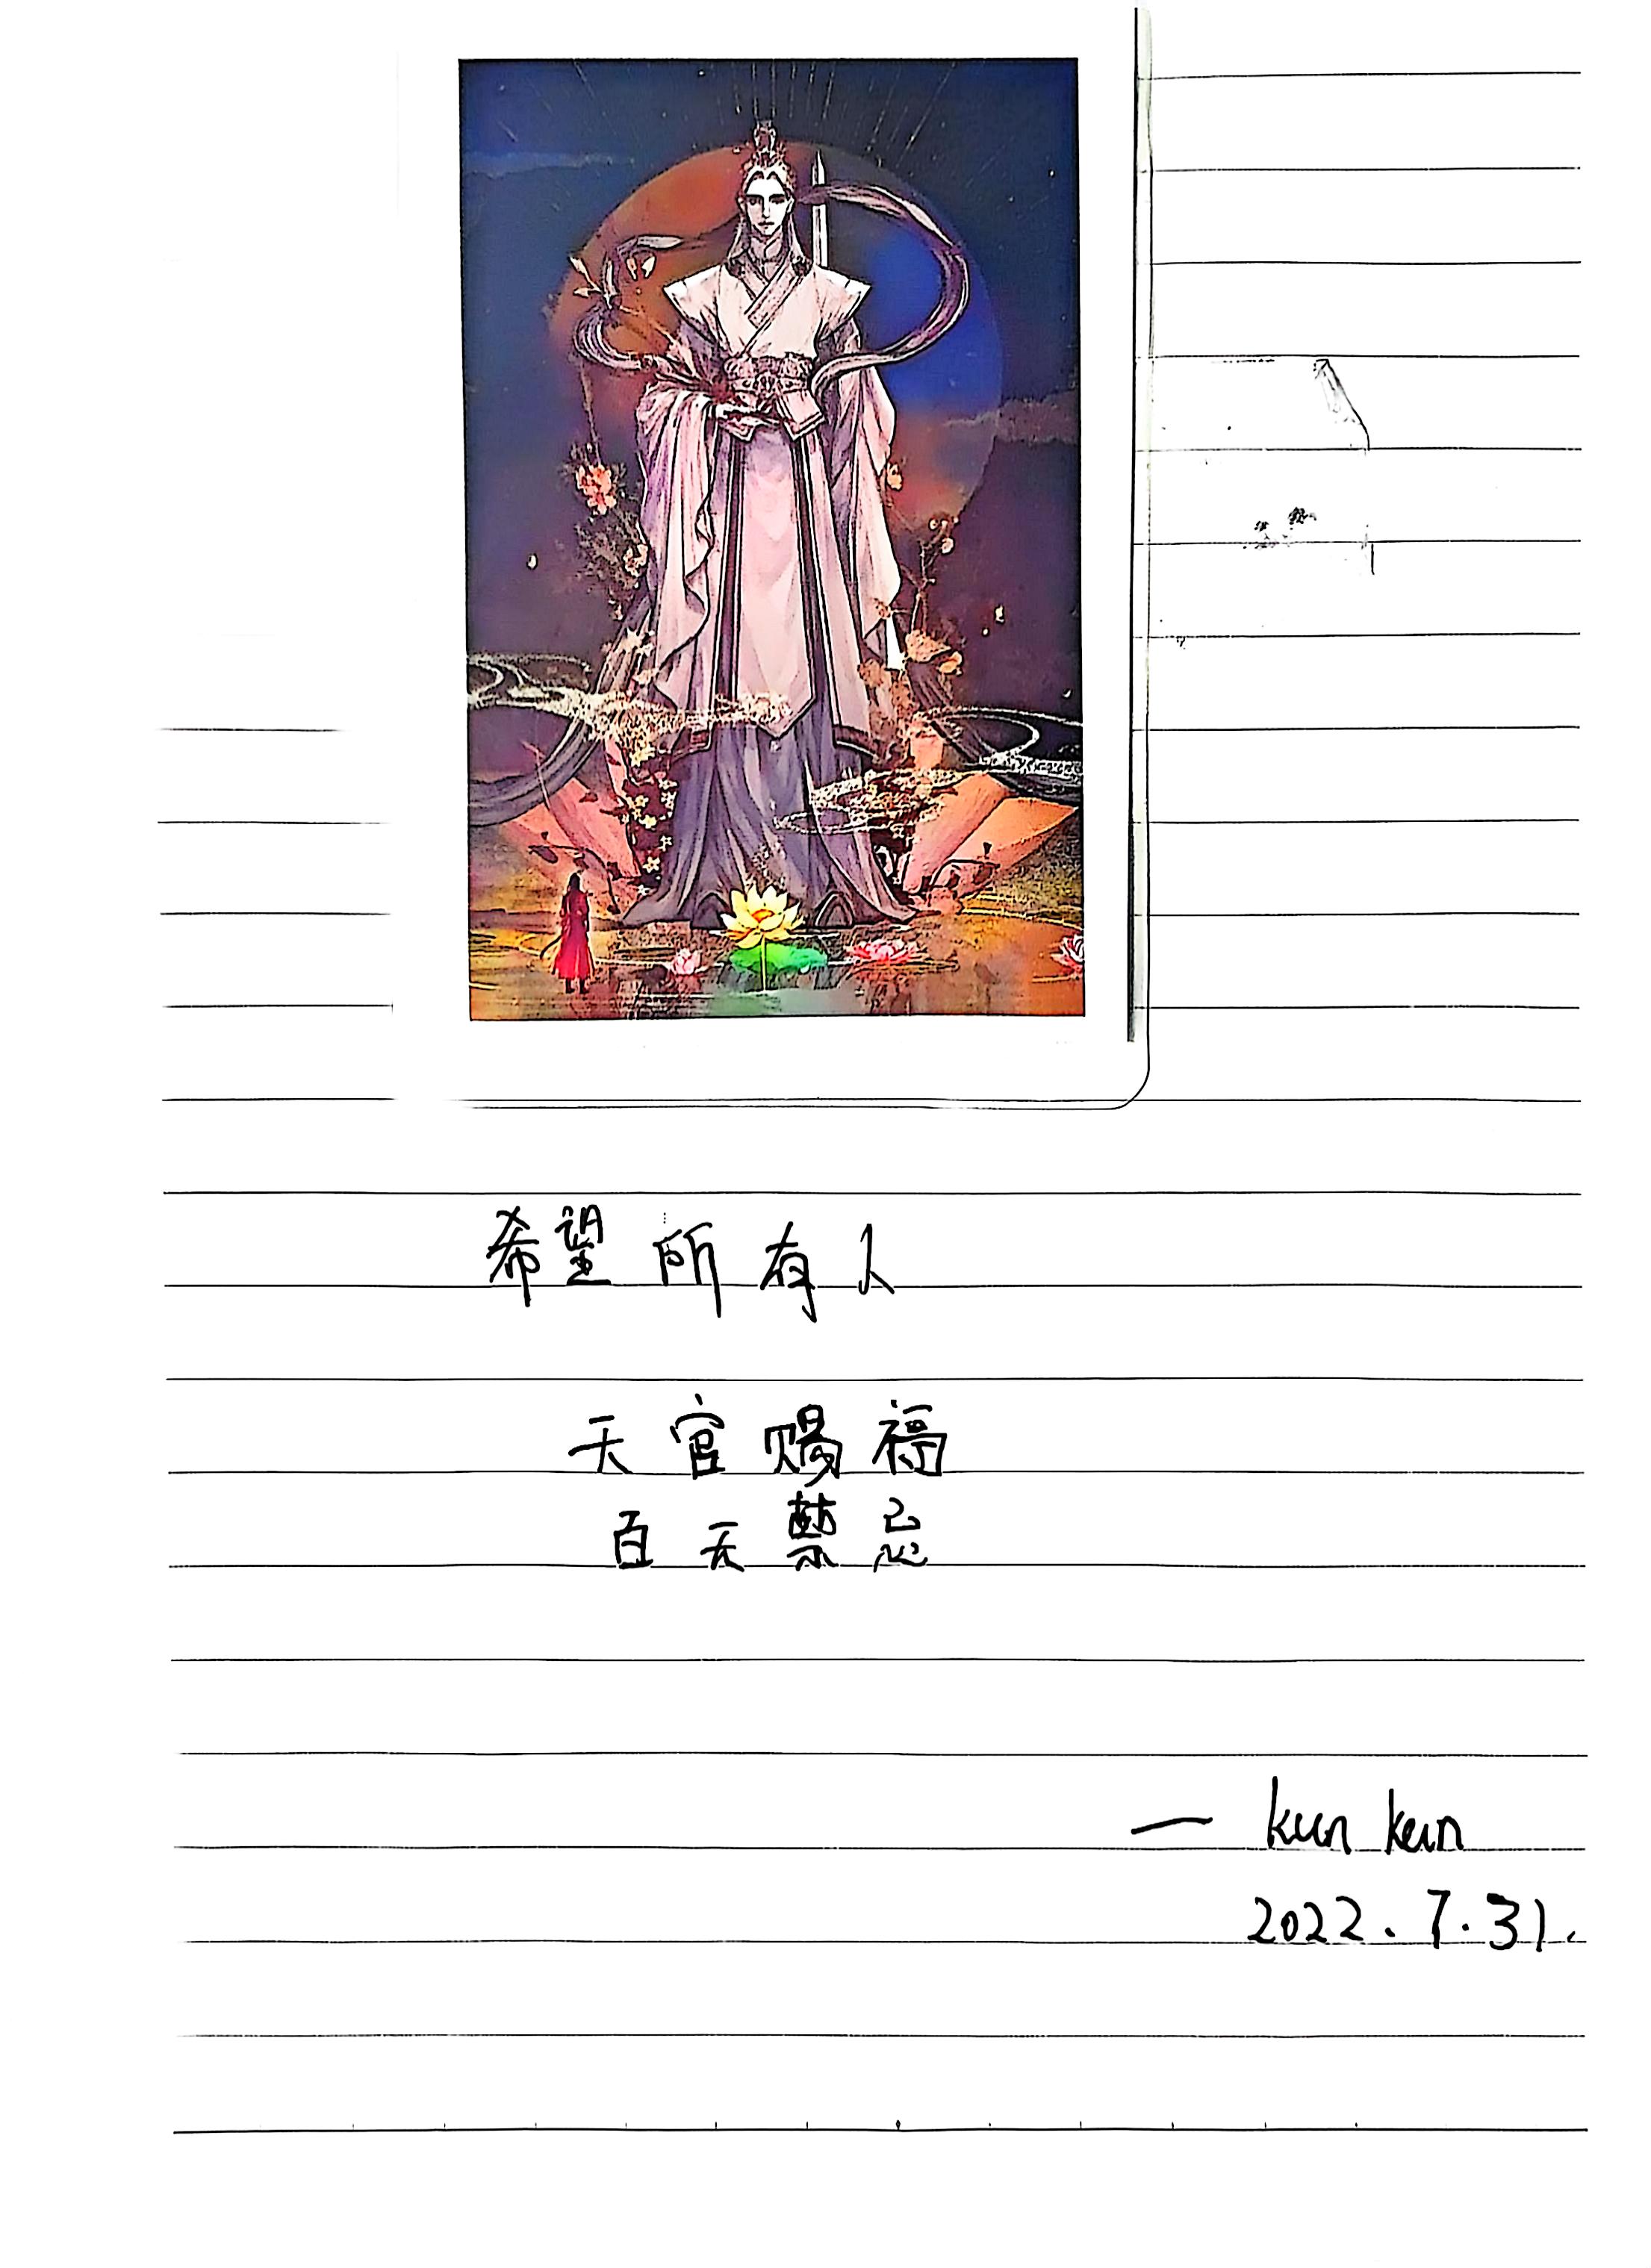 希望所有人
天官赐福
百无禁忌
— kun kun
2022.7.31.